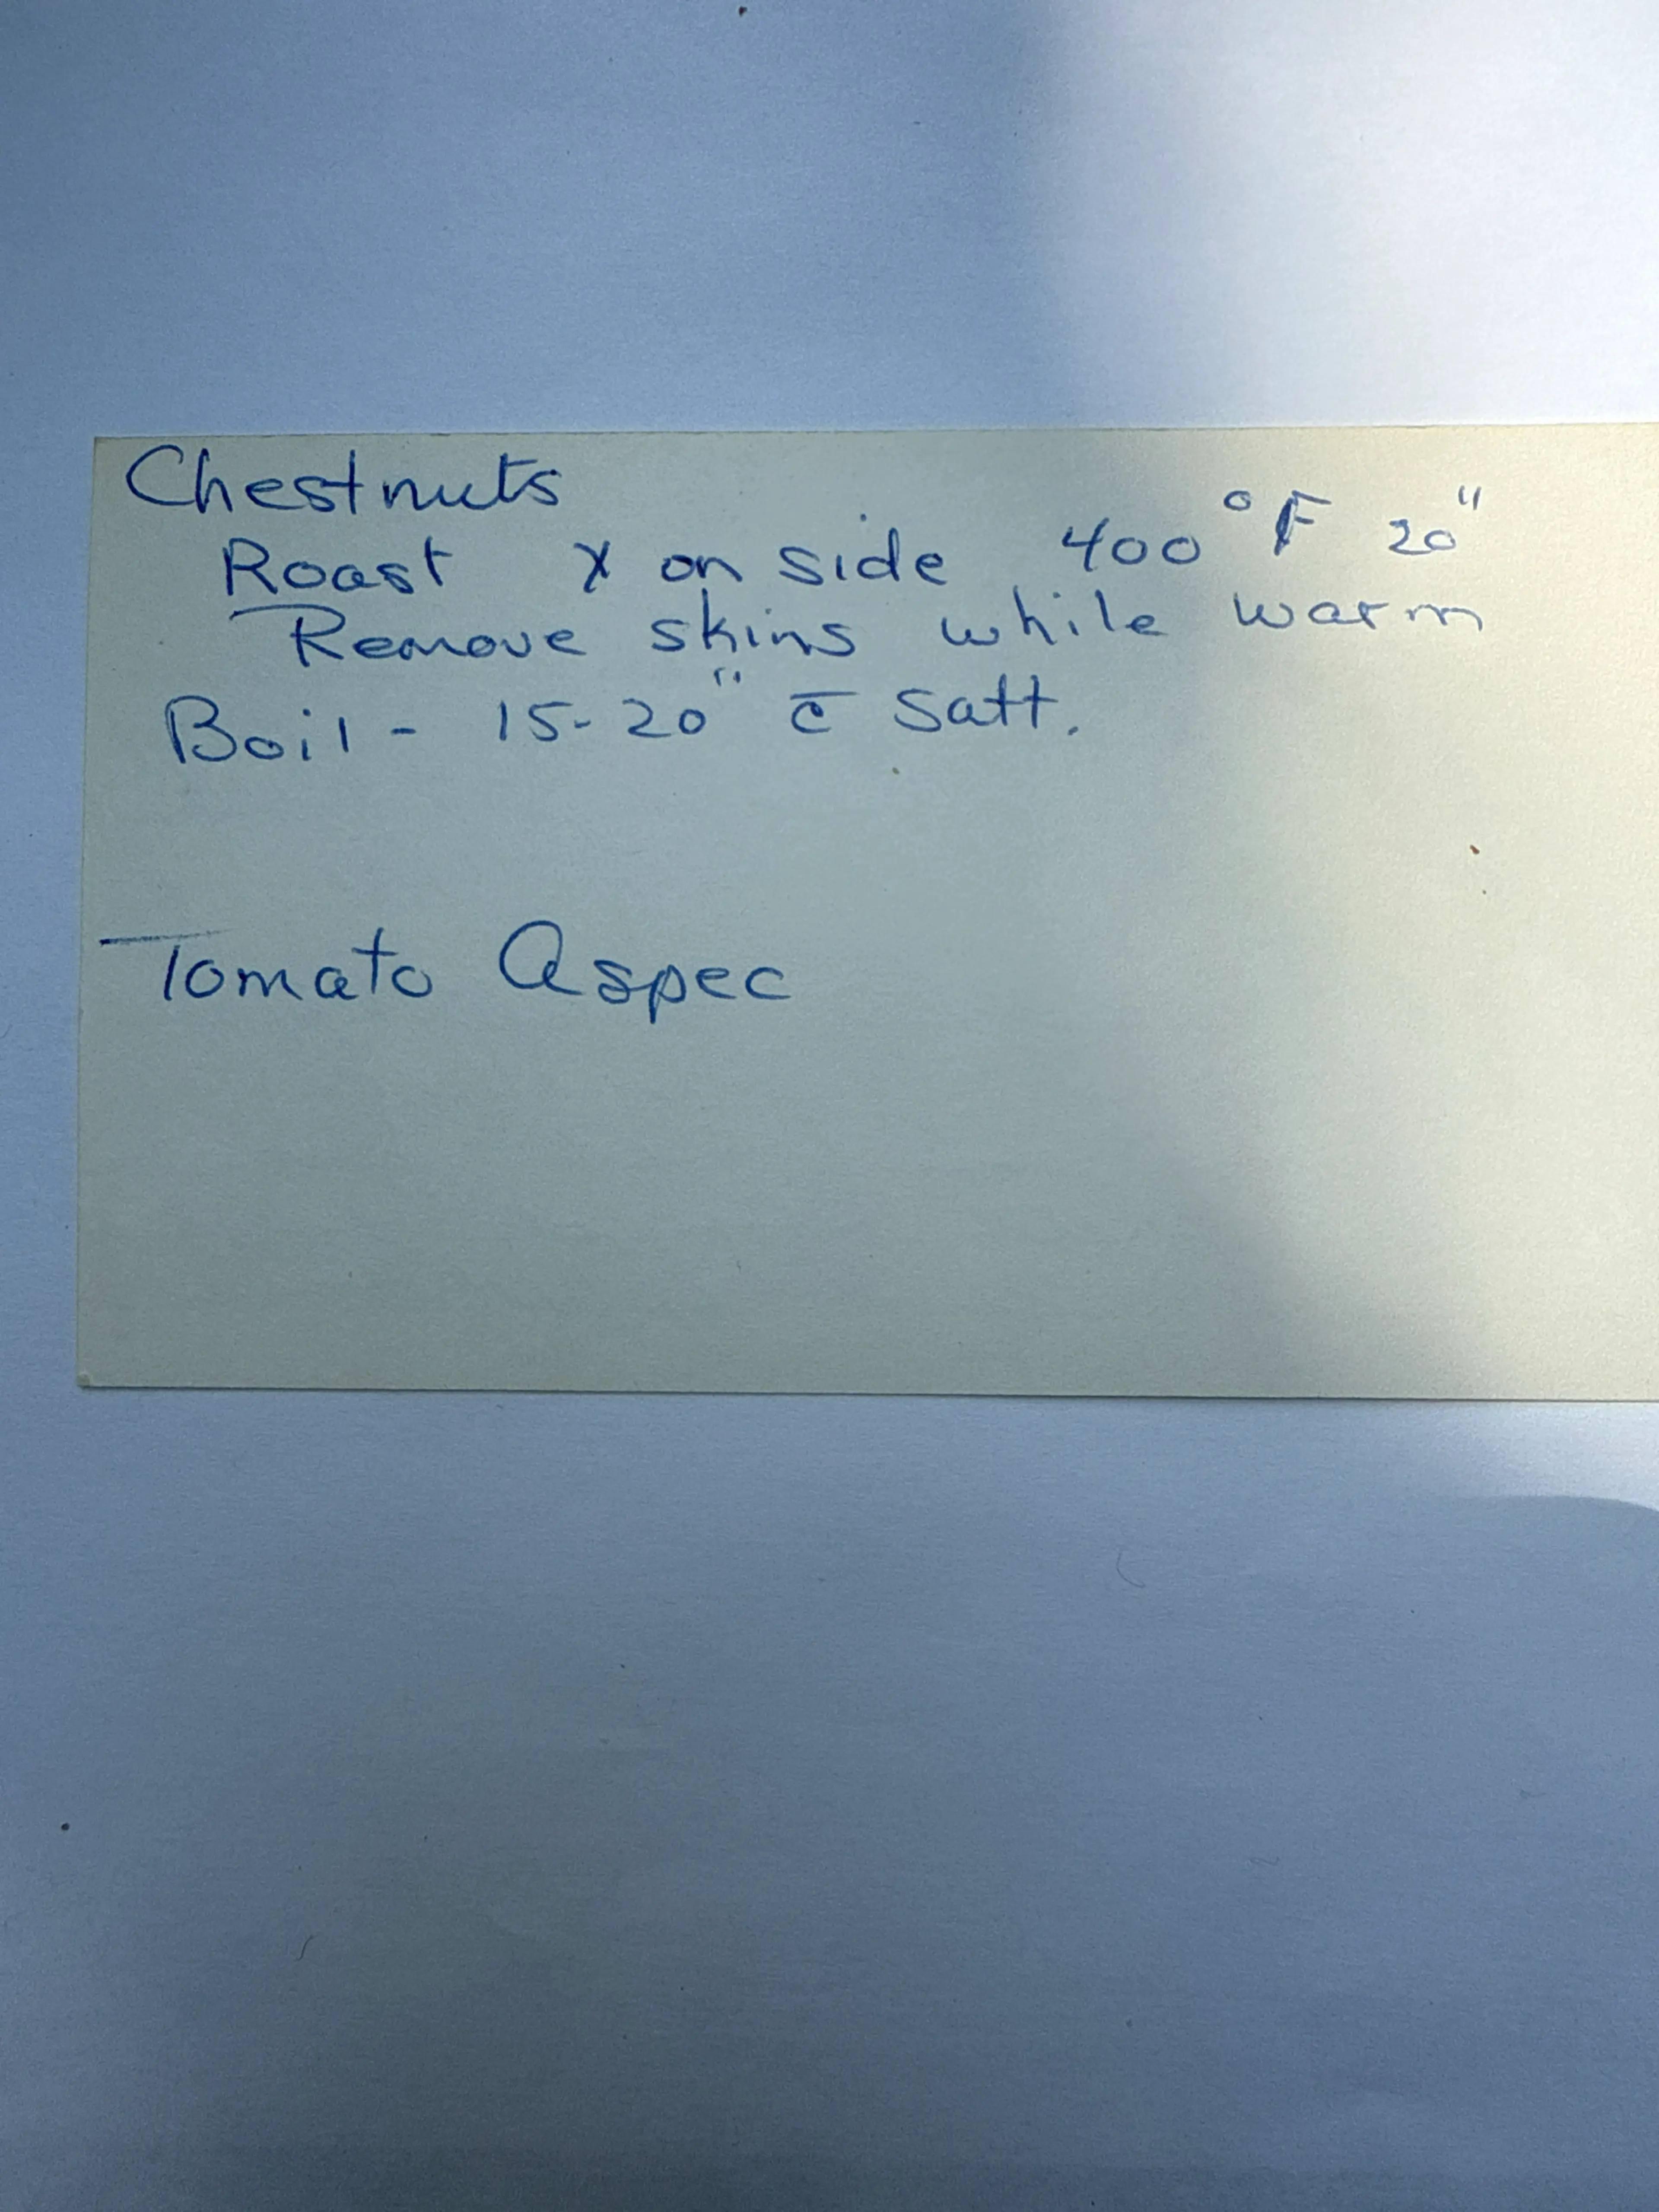 Chestnuts
Roast x on side 400°F 20"
Remove skins while warm
Boil - 15-20" c̄ Satt.
Tomato Aspec